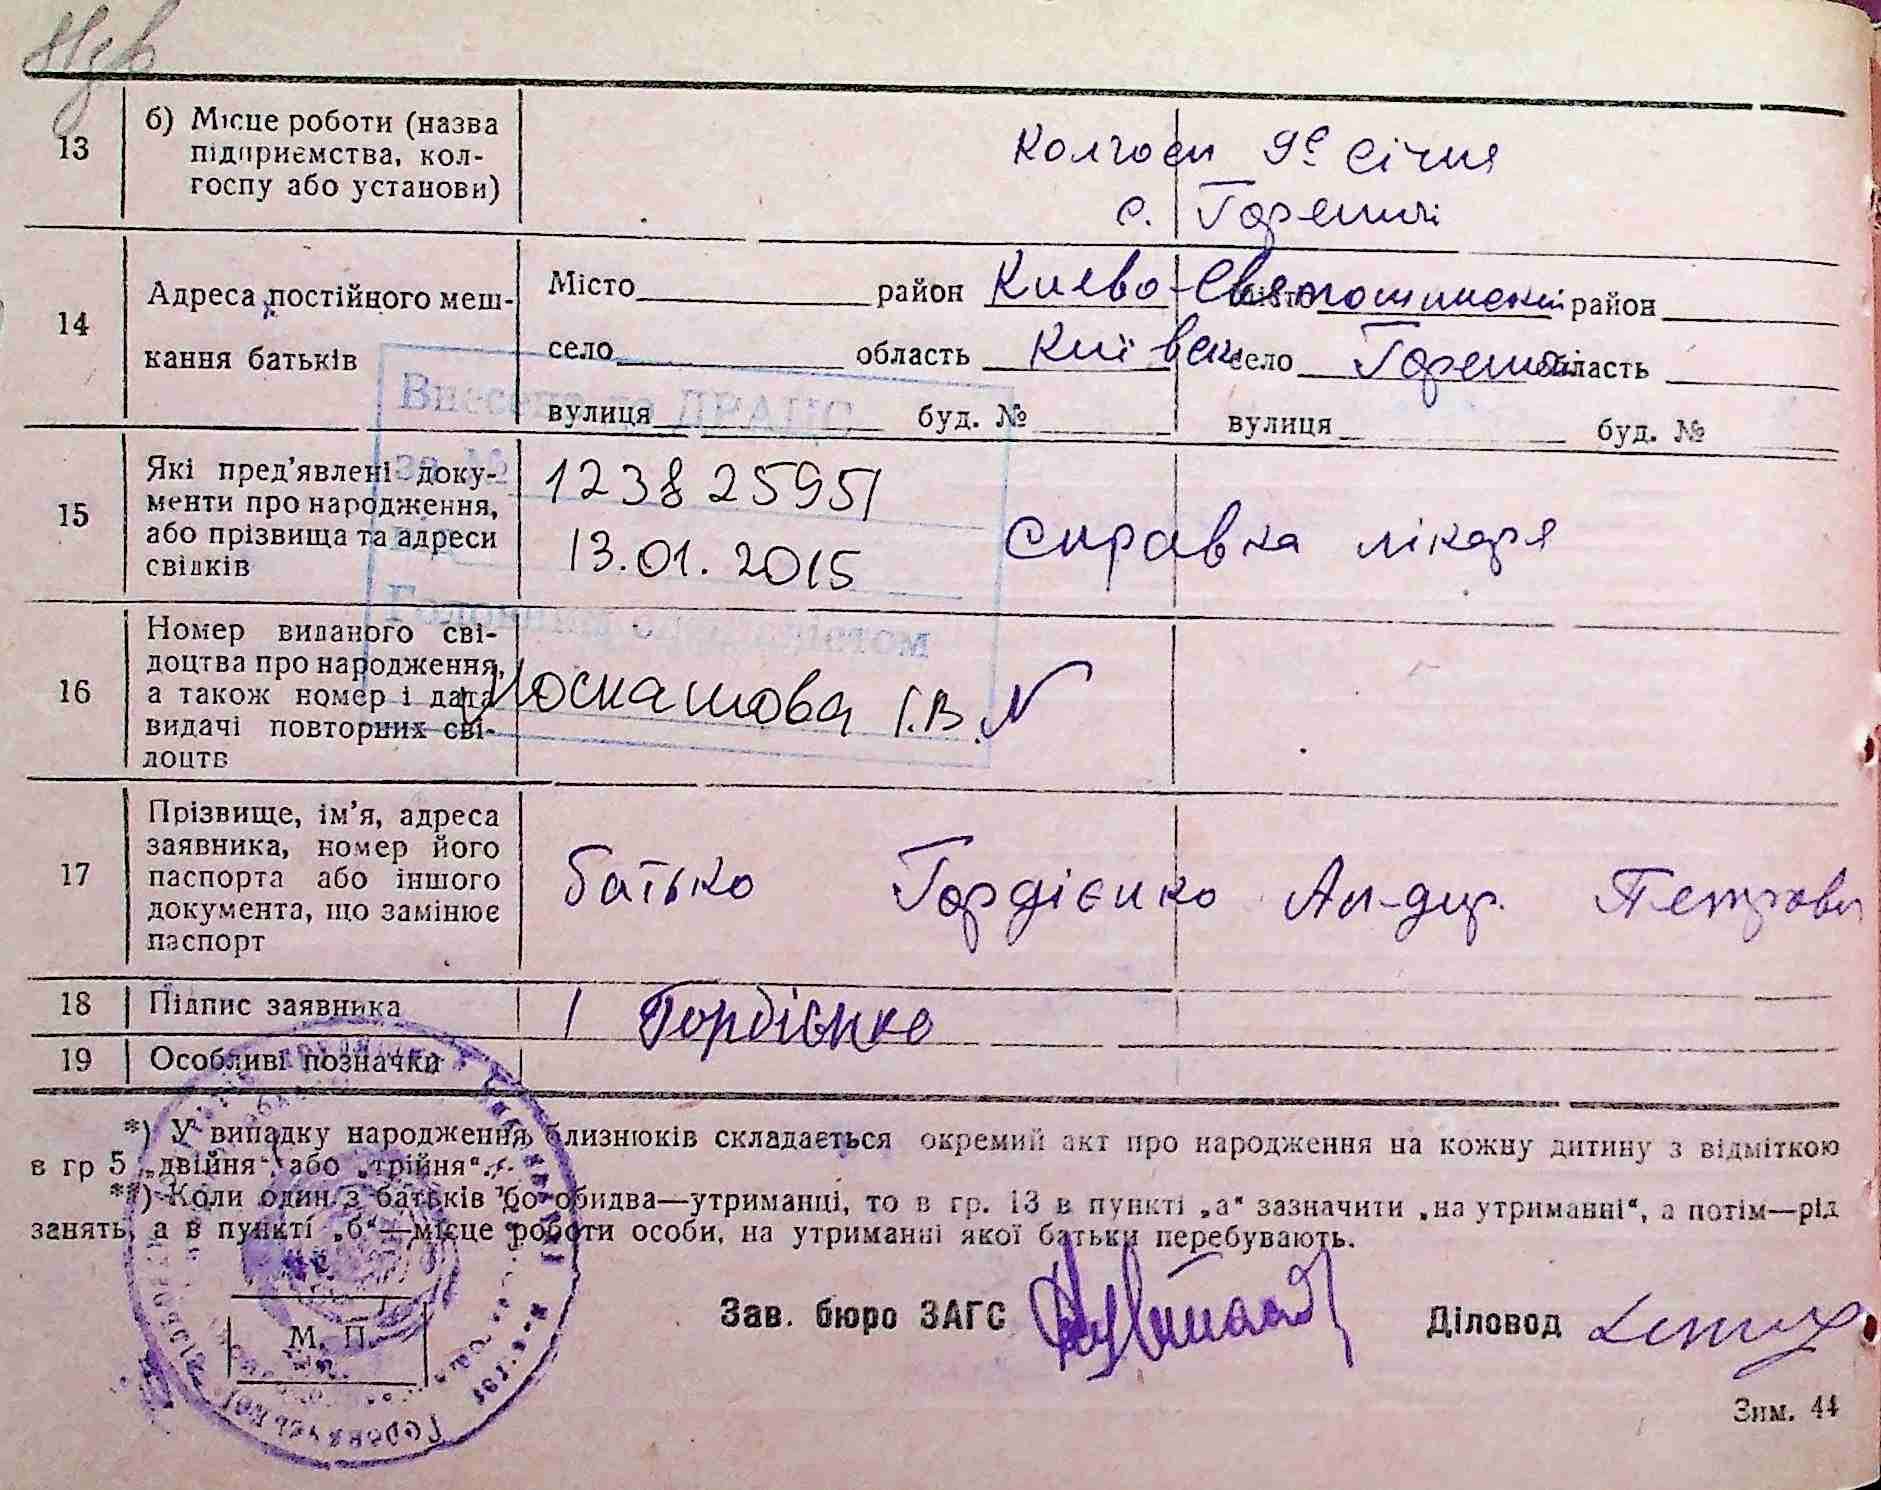 13 б) Місце роботи (назва
підприємства, кол-
госпу або установи)
Колгосп 9е січня
с. Гореничі
14 Адреса постійного меш-
кання батьків
Місто район Києво-Святошинский місто район
село область Київськ село Горенич область
вулиця буд. № вулиця буд. №
15 Які пред'явлені доку-
менти про народження,
або прізвища та адреси
свідків
Внесено до ДРАЦС
за №
12382595
13.01.2015
Справка лікаря
16 Номер виданого сві-
доцтва про народження,
а також номер і дата
видачі повторних сві-
доцтв
Москашова І.В.
17 Прізвище, ім'я, адреса
заявника, номер його
паспорта або іншого
документа, що замінює
паспорт
батько Гордієнко Ал-др. Петрович
18 Підпис заявника Гордієнко
19 Особливі позначки
*) У випадку народження близнюків складається окремий акт про народження на кожну дитину з відміткою
в гр 5 „двійня“, або „трійня“.
**) Коли один з батьків бо обидва—утриманці, то в гр. 13 в пункті „а“ зазначити „на утриманні“, а потім—рід
занять, а в пункті „б“—місце роботи особи, на утриманні якої батьки перебувають.
М. П.
Зав. бюро ЗАГС Діловод
Зим. 44